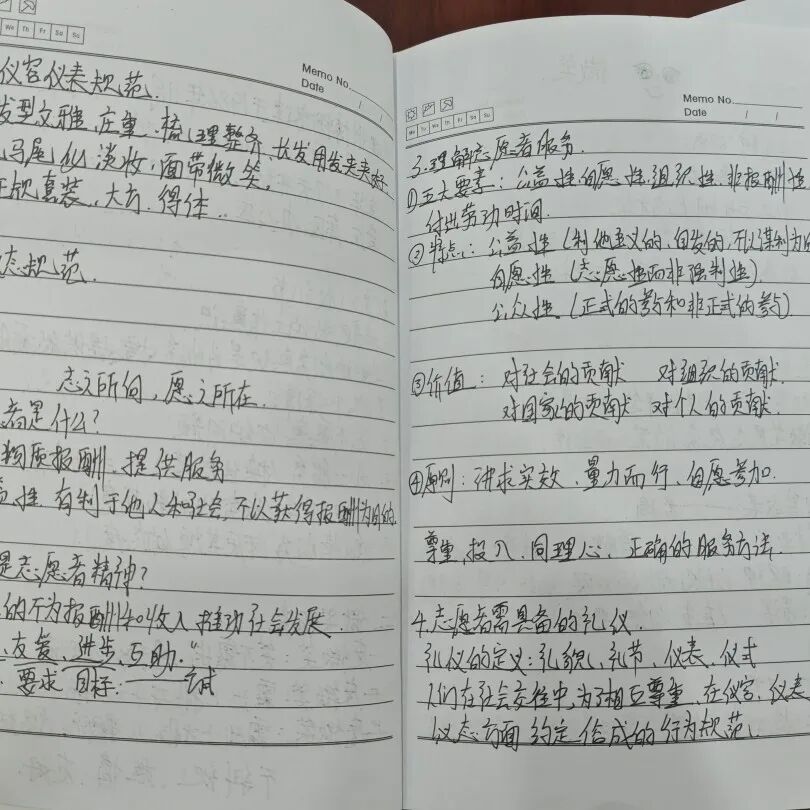 We Th Fr Sa Su
Memo No.
Date / /
仪容仪表规范.
发型文雅、庄重、梳理整齐、长发用发夹夹好
马尾 淡妆,面带微笑.
套装、大方、得体..
态规范.
志之所向,愿之所在.
者是什么?
物质报酬、提供服务
益性、有利于他人和社会、不以获得报酬为目的.
是志愿者精神?
的不为报酬和收入推动社会发展.
、友爱、进步、互助."
要求 目标
Mo Tu We Th Fr Sa Su
Memo No.
Date / /
3.理解志愿者服务.
①五大要素:公益性、自愿性、组织性、非报酬性
付出劳动时间.
②特点:公益性(利他主义的、自发的、不以谋利为目
自愿性(志愿性而非强制性).
公众性.(正式的参与和非正式的参与)
③价值:对社会的贡献 对组织的贡献.
对国家的贡献 对个人的贡献.
④原则:讲求实效、量力而行、自愿参加.
尊重、投入、同理心、正确的服务方法.
4.志愿者需具备的礼仪.
礼仪的定义:礼貌、礼节、仪表、仪式
人们在社会交往中,为了相互尊重、在仪容、仪表
仪态方面 约定俗成的行为规范.